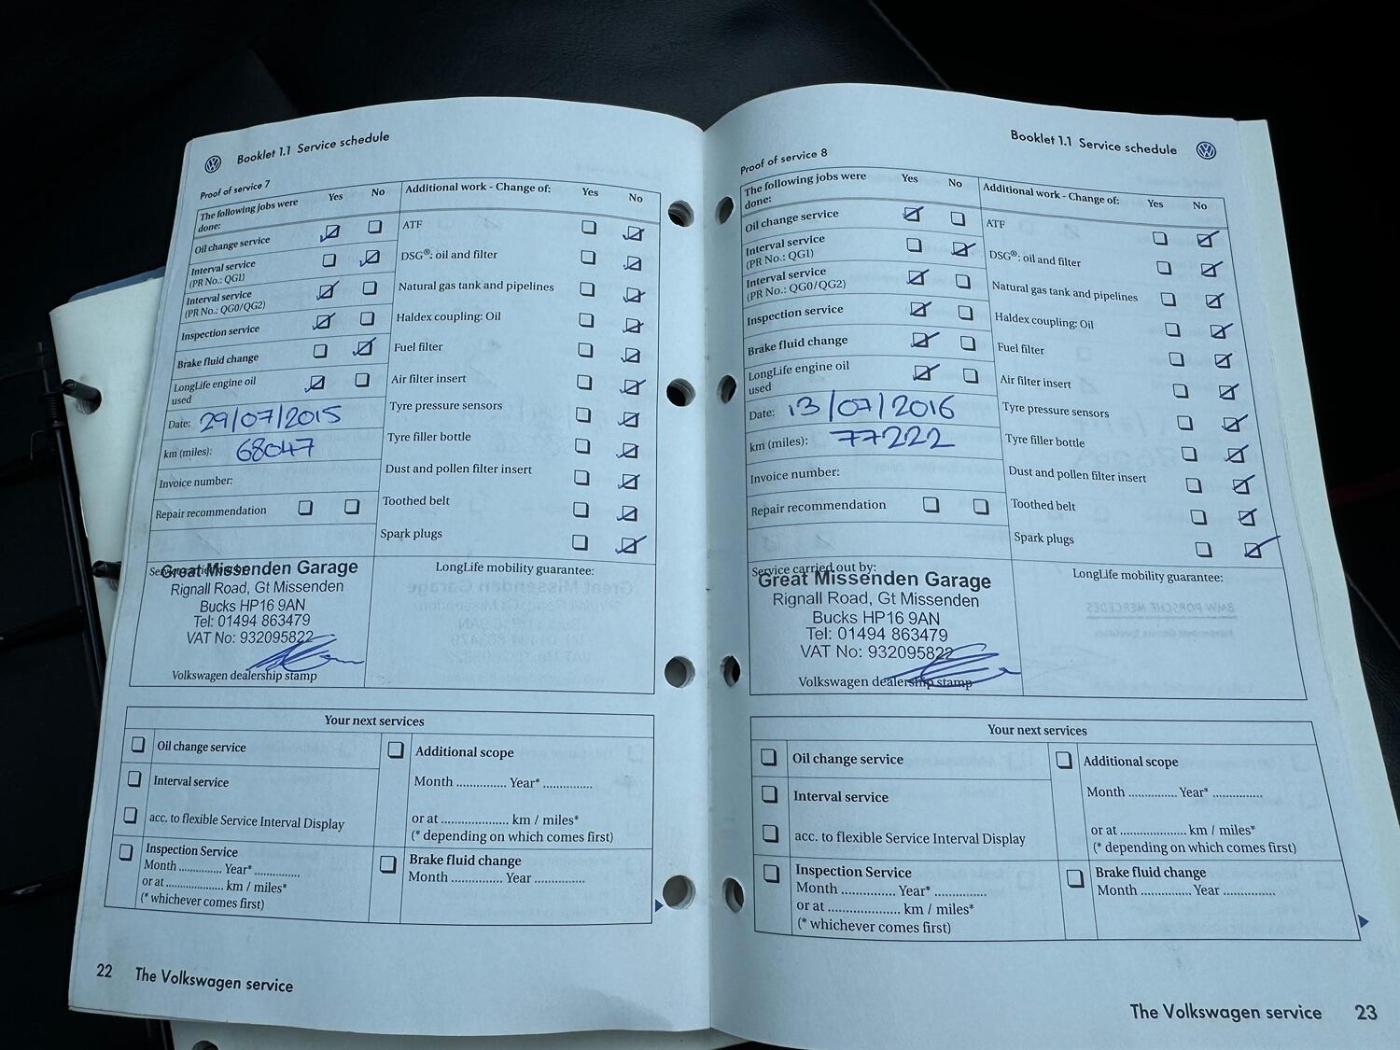 Booklet 1.1 Service schedule
Proof of service 7
The following jobs were done: Yes No
Oil change service
Interval service
(PR No.: QG1)
Interval service
(PR No.: QG0/QG2)
Inspection service
Brake fluid change
LongLife engine oil
used
Date: 29/07/2015
km (miles): 68047
Invoice number:
Repair recommendation
Additional work - Change of: Yes No
ATF
DSG®: oil and filter
Natural gas tank and pipelines
Haldex coupling: Oil
Fuel filter
Air filter insert
Tyre pressure sensors
Tyre filler bottle
Dust and pollen filter insert
Toothed belt
Spark plugs
Great Missenden Garage
Rignall Road, Gt Missenden
Bucks HP16 9AN
Tel: 01494 863479
VAT No: 932095822
Volkswagen dealership stamp
LongLife mobility guarantee:
Your next services
Oil change service
Interval service
acc. to flexible Service Interval Display
Inspection Service
Month ............... Year* ...............
or at .................... km / miles*
(* whichever comes first)
Additional scope
Month ............... Year* ...............
or at .................... km / miles*
(* depending on which comes first)
Brake fluid change
Month ............... Year ...............
22 The Volkswagen service
Booklet 1.1 Service schedule
Proof of service 8
The following jobs were done: Yes No
Oil change service
Interval service
(PR No.: QG1)
Interval service
(PR No.: QG0/QG2)
Inspection service
Brake fluid change
LongLife engine oil
used
Date: 13/07/2016
km (miles): 77222
Invoice number:
Repair recommendation
Additional work - Change of: Yes No
ATF
DSG®: oil and filter
Natural gas tank and pipelines
Haldex coupling: Oil
Fuel filter
Air filter insert
Tyre pressure sensors
Tyre filler bottle
Dust and pollen filter insert
Toothed belt
Spark plugs
Service carried out by:
Great Missenden Garage
Rignall Road, Gt Missenden
Bucks HP16 9AN
Tel: 01494 863479
VAT No: 932095822
Volkswagen dealership stamp
LongLife mobility guarantee:
Your next services
Oil change service
Interval service
acc. to flexible Service Interval Display
Inspection Service
Month ............... Year* ...............
or at .................... km / miles*
(* whichever comes first)
Additional scope
Month ............... Year* ...............
or at .................... km / miles*
(* depending on which comes first)
Brake fluid change
Month ............... Year ...............
The Volkswagen service 23